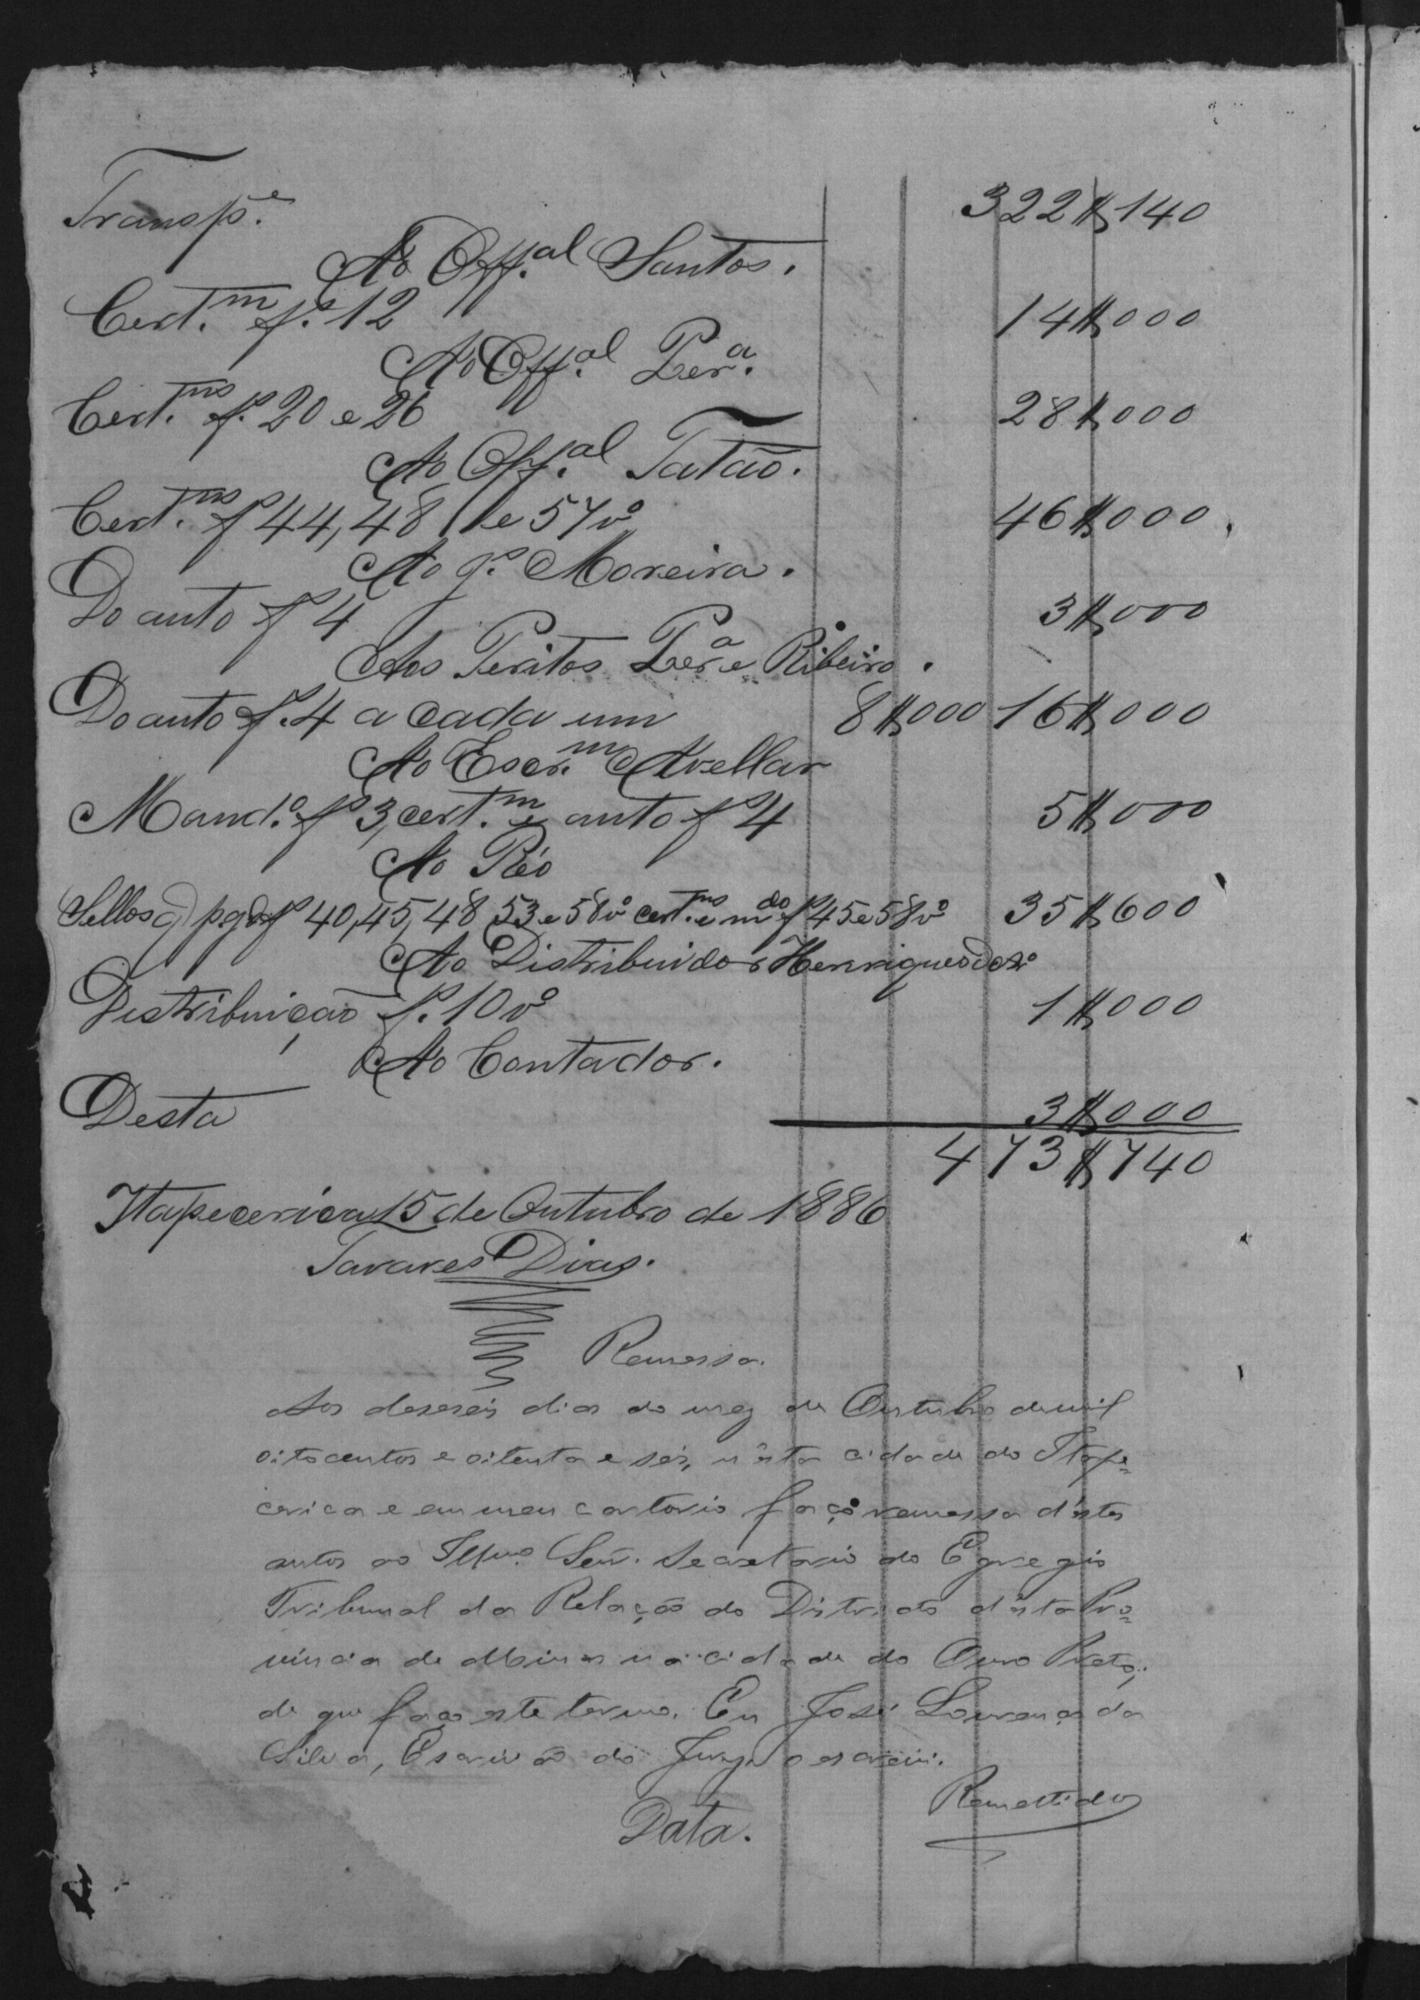 Transp.e 322$140
Ao Off.al Santos.
Cert.m f. 12 14$000
Ao Off.al Per.a
Cert.ms f. 20 e 26 28$000
Ao Off.al Tatão.
Cert.ms f 44, 48 e 57vº 46$000
Ao g.º Moreira.
Do auto f 4 3$000
Aos Peritos Per.a e Ribeiro.
Do auto f. 4 a cada um 8$000 16$000
Ao Escr.m Avellar
Mand.º f 3, cert.m e auto f 4 5$000
Ao Réo
Sellos q pg f 40, 45, 48 53 e 58vº cert.ms e mdo f 45 e 58vº 35$600
Ao Distribuidor Henriques
Distribuição f. 10vº 1$000
Ao Contador.
Desta 3$000
473$740
Itapecerica 15 de Outubro de 1886
Tavares Dias.
Remessa.
Aos deseseis dias do mez de Outubro de mil
oitocentos e oitenta e seis, n'esta cidade do Itape=
cerica e em meu cartorio faço remessa d'estes
autos ao Illmo. Senr. Secretario do Egregio
Tribunal da Relação do Districto d'esta Pro=
vincia de Minas na cidade do Ouro Preto,
de que faço este termo. Eu José Lourenço da
Silva, Escrivão do Jury o escrevi.
Remettidos
Data.